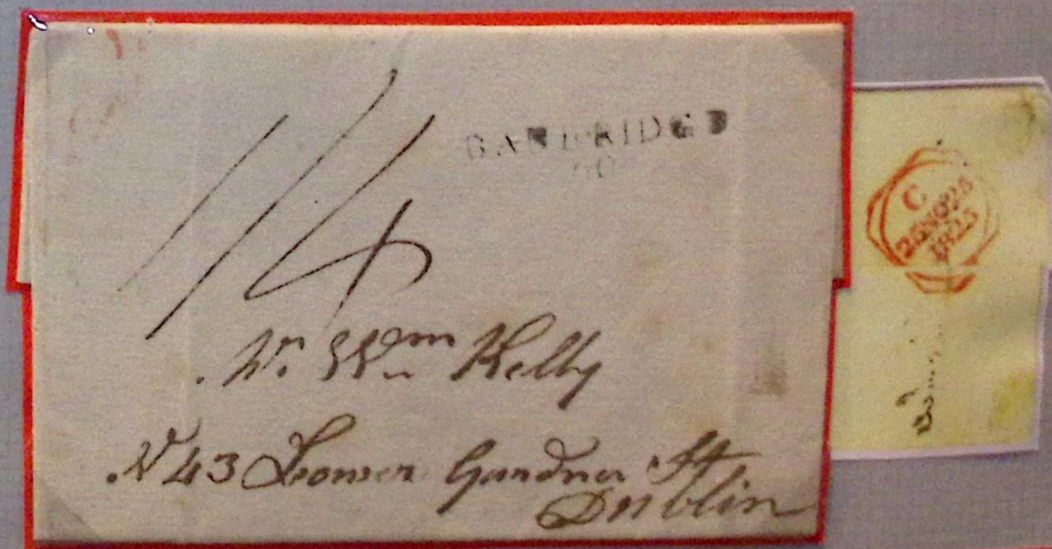 1/4
BANBRIDGE
60
Mr. Wm Kelly
N 43 Lower Gardner St
Dublin
C
25NO25
1825